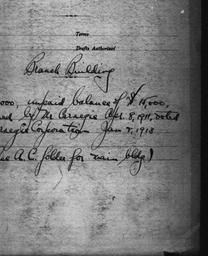 Terms
Drafts Authorized
Branch Building
000, unpaid balance of $10,000,
by Mr Carnegie Apr. 8, 1911,
Corporation Jan 7, 1913
A.C. folder for main bldg)